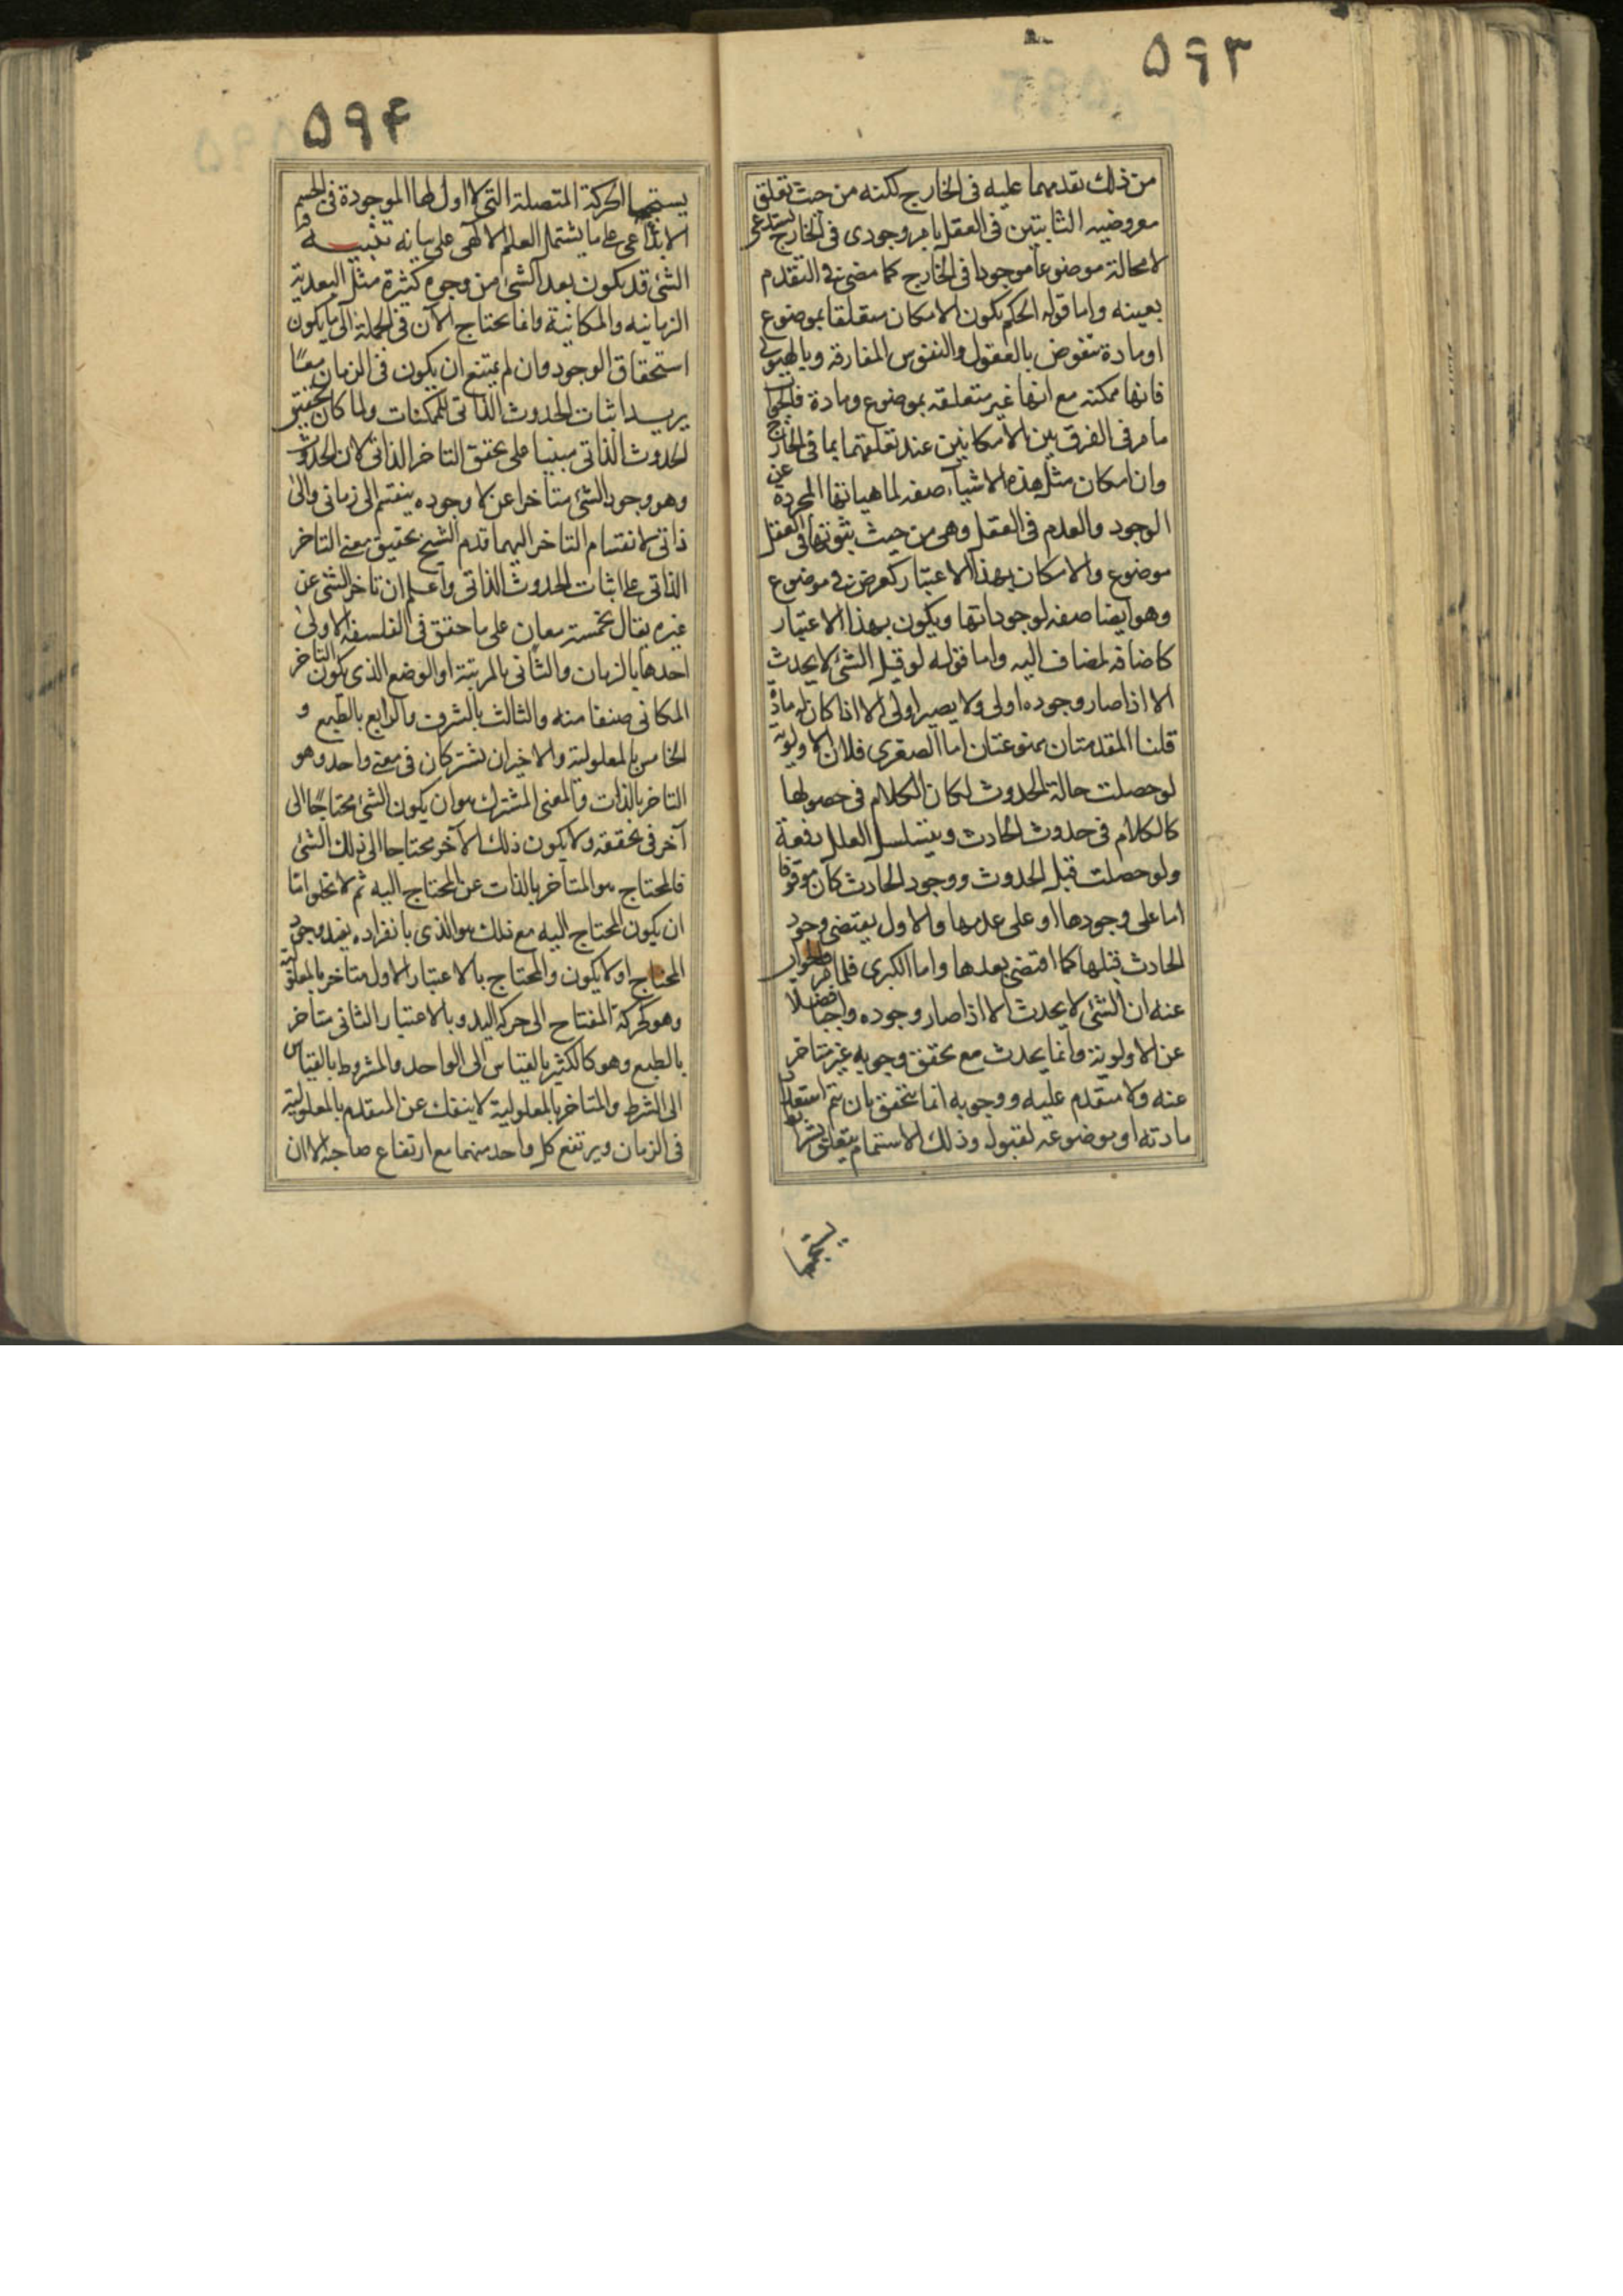 ۵۹۳
من ذلك تقدمهما عليه فى الخارج لكنه من حيث تعلق
معروضيه الثابتين فى العقل بامر وجودى فى الخارج يستدعى
لا محالة موضوعا موجودا فى الخارج كما مضى فى التقدم
بعينه واما قوله الحكم بكون الامكان متعلقا بموضوع
او مادة منقوض بالعقول والنفوس المفارقه وبالهيولى
فانها ممكنه مع انها غير متعلقه بموضوع ومادة فالجواب
ما مر فى الفرق بين الامكانين عند تعلقهما بما فى الخارج
وان امكان مثل هذه الاشياء صفه لماهياتها المجردة عن
الوجود والعدم فى العقل وهى من حيث ثبوتها فى العقل
موضوع والامكان بهذا الاعتبار كعرض فى موضوع
وهو ايضا صفه لوجوداتها ويكون بهذا الاعتبار
كاضافه لمضاف اليه واما قوله لو قيل الشئ لا يحدث
الا اذا صار وجوده اولى ولا يصير اولى الا اذا كان له مادة
قلنا المقدمتان ممنوعتان اما الصغرى فلان الاولوية
لو حصلت حالة الحدوث لكان الكلام فى حصولها
كالكلام فى حدوث الحادث ويتسلسل العلل دفعة
ولو حصلت قبل الحدوث ووجود الحادث كان موقوفا
اما على وجودها او على عدمها والاول يقتضى وجود
الحادث قبلها كما اقتضى بعدها واما الكبرى فلما مر والجواب
عنه ان الشئ لا يحدث الا اذا صار وجوده واجبا فضلا
عن الاولوية وانما يحدث مع تحقق وجوبه غير متاخر
عنه ولا متقدم عليه ووجوبه انما يتحقق بان يتم استعداد
مادته او موضوعه لقبول وذلك الاستتمام يتعلق بشرائط
يستتبعها
۵۹۴
يستتبعها الحركة المتصلة التى لا اول لها الموجودة فى الجسم
الابداعى على ما يشتمل العلم الالهى على بيانه تنبيه و
الشئ قد يكون بعد الشئ من وجوه كثيرة مثل البعدية
الزمانيه والمكانية وانما يحتاج الآن فى الجملة الى ما يكون
استحقاق الوجود وان لم يمتنع ان يكون فى الزمان معًا
يريد اثبات الحدوث الذاتى للممكنات ولما كان تحقيق
الحدوث الذاتى مبنيا على تحقق التاخر الذاتى لان الحدوث
وهو وجود الشئ متاخرا عن لا وجوده ينقسم الى زمانى والى
ذاتى لانقسام التاخر اليهما قدم الشيخ تحقيق معنى التاخر
الذاتى على اثبات الحدوث الذاتى واعلم ان تاخر الشئ عن
غيره يقال بخمسة معان على ما حقق فى الفلسفه الاولى
احدها بالزمان والثانى بالمرتبة او الوضع الذى يكون التاخر
المكانى صنفا منه والثالث بالشرف والرابع بالطبع و
الخامس بالمعلولية والاخيران يشتركان فى معنى واحد وهو
التاخر بالذات والمعنى المشترك هو ان يكون الشئ محتاجًا الى
آخر فى تحققه ولا يكون ذلك الآخر محتاجا الى ذلك الشئ
فالمحتاج هو المتاخر بالذات عن المحتاج اليه ثم لا يخلو امّا
ان يكون المحتاج اليه مع ذلك هو الذى بانفراده يفيد وجود
المحتاج او لا يكون والمحتاج بالاعتبار الاول متاخر بالمعلولية
وهو كحركة المفتاح الى حركه اليد وبالاعتبار الثانى متاخر
بالطبع وهو كالكثير بالقياس الى الواحد والمشروط بالقياس
الى الشرط والمتاخر بالمعلولية لا ينفك عن المتقدم بالمعلولية
فى الزمان ويرتفع كل واحد منهما مع ارتفاع صاحبه الا ان